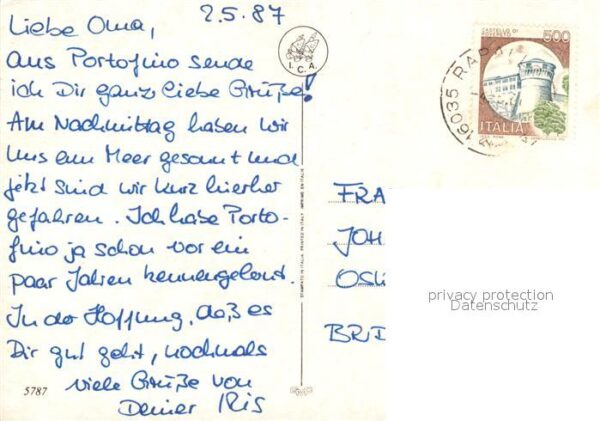 2.5.87
Liebe Oma,
aus Portofino sende
ich Dir ganz liebe Grüße!
Am Nachmittag haben wir
uns am Meer gesonnt und
jetzt sind wir kurz hierher
gefahren. Ich habe Porto-
fino ja schon vor ein
paar Jahren kennengelernt.
In der Hoffnung, daß es
Dir gut geht, nochmals
viele Grüße von
Deiner Iris
5787
I.C.A.
STAMPATO IN ITALIA PRINTED IN ITALY IMPRIMÉ EN ITALIE
CASTELLO DI
500
ITALIA
16035 RAPA
FRA
JOH
OSL
BRD
privacy protection
Datenschutz